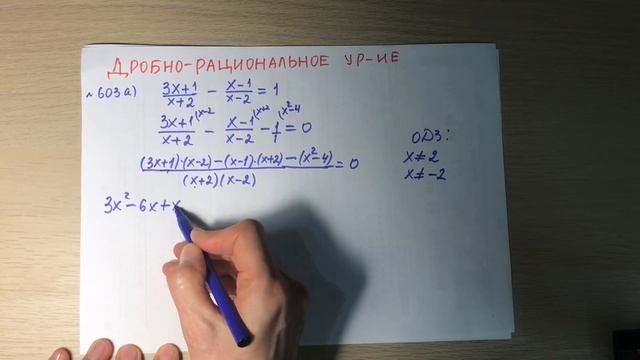 ДРОБНО-РАЦИОНАЛЬНОЕ УР-ИЕ
№603 а) (3x+1)/(x+2) − (x−1)/(x−2) = 1
(3x+1)/(x+2) (x−2 − (x−1)/(x−2) (x+2 − 1/1 (x²−4 = 0
((3x+1)·(x−2)−(x−1)·(x+2)−(x²−4))/((x+2)(x−2)) = 0
3x²−6x+x
ОДЗ:
x≠2
x≠−2